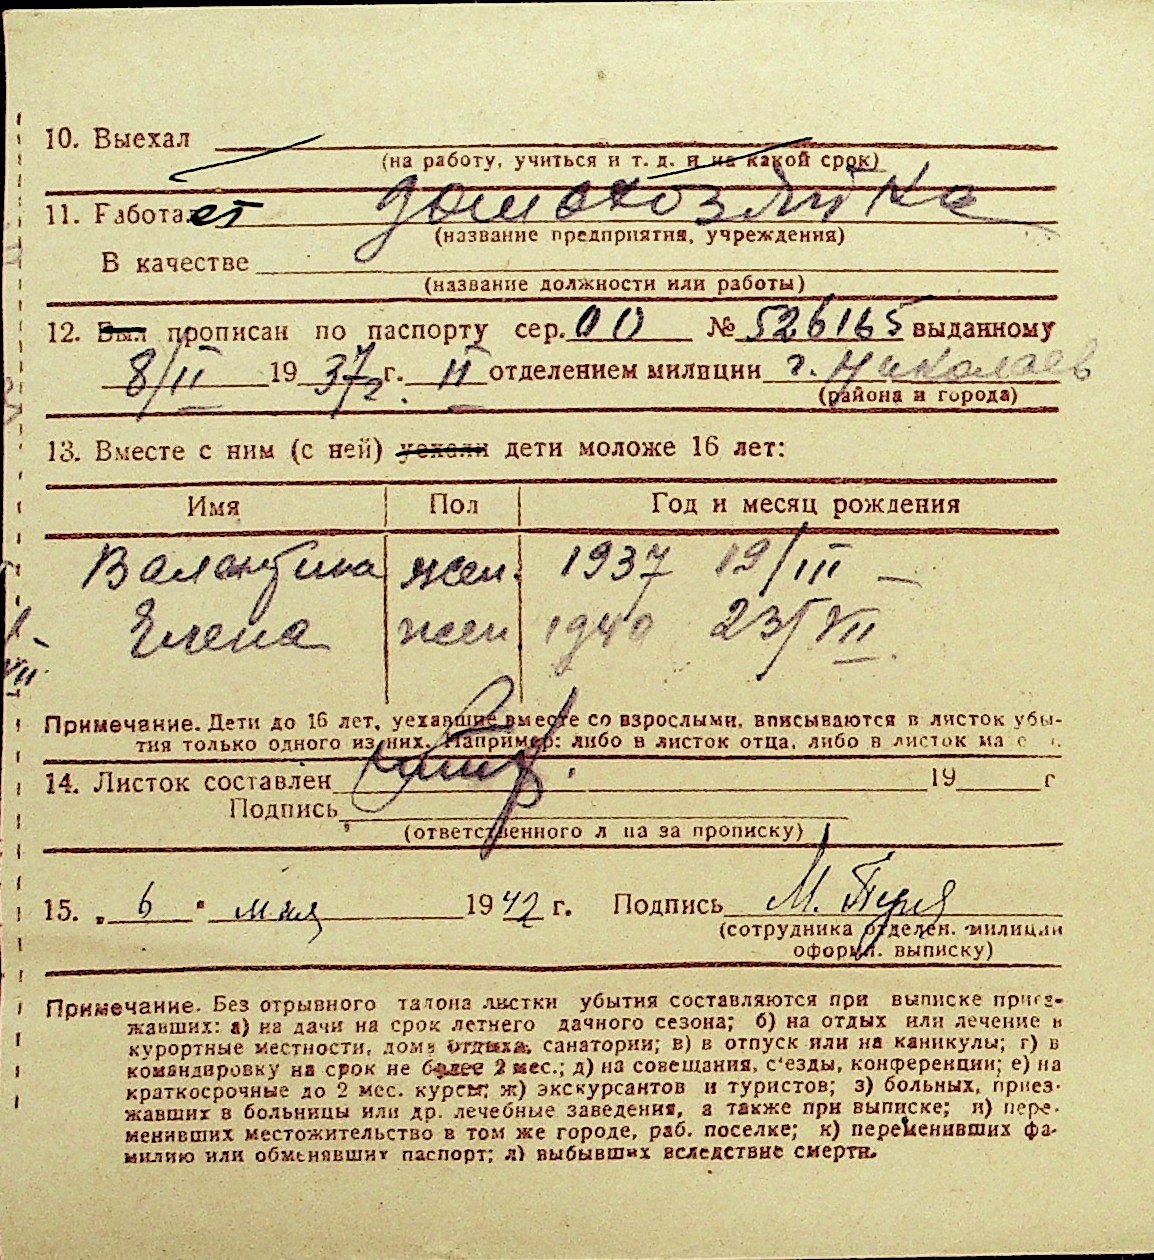 10. Выехал
(на работу, учиться и т. д. и на какой срок)
11. Работает домохозяйка
(название предприятия, учреждения)
В качестве
(название должности или работы)
12. Был прописан по паспорту сер. 00 № 526165 выданному
8/II 1937 г. г. II отделением милиции г. Николаев
(района и города)
13. Вместе с ним (с ней) уехали дети моложе 16 лет:
Имя Пол Год и месяц рождения
Валентина жен. 1937 19/III
Елена жен 1940 23/VII.
VII
Примечание. Дети до 16 лет, уехавшие вместе со взрослыми, вписываются в листок убы-
тия только одного из них. Например: либо в листок отца, либо в листок
14. Листок составлен 19 г
Подпись
(ответственного л ца за прописку)
15. „ 6 " мая 1942 г. Подпись М.
(сотрудника отделен. милиции
оформл. выписку)
Примечание. Без отрывного талона листки убытия составляются при выписке приез-
жавших: а) на дачи на срок летнего дачного сезона; б) на отдых или лечение в
курортные местности, дома отдыха, санатории; в) в отпуск или на каникулы; г) в
командировку на срок не более 2 мес.; д) на совещания, с'езды, конференции; е) на
краткосрочные до 2 мес. курсы; ж) экскурсантов и туристов; з) больных, приез-
жавших в больницы или др. лечебные заведения, а также при выписке; и) пере-
менивших местожительство в том же городе, раб. поселке; к) переменивших фа-
милию или обменявших паспорт; л) выбывших вследствие смерти.